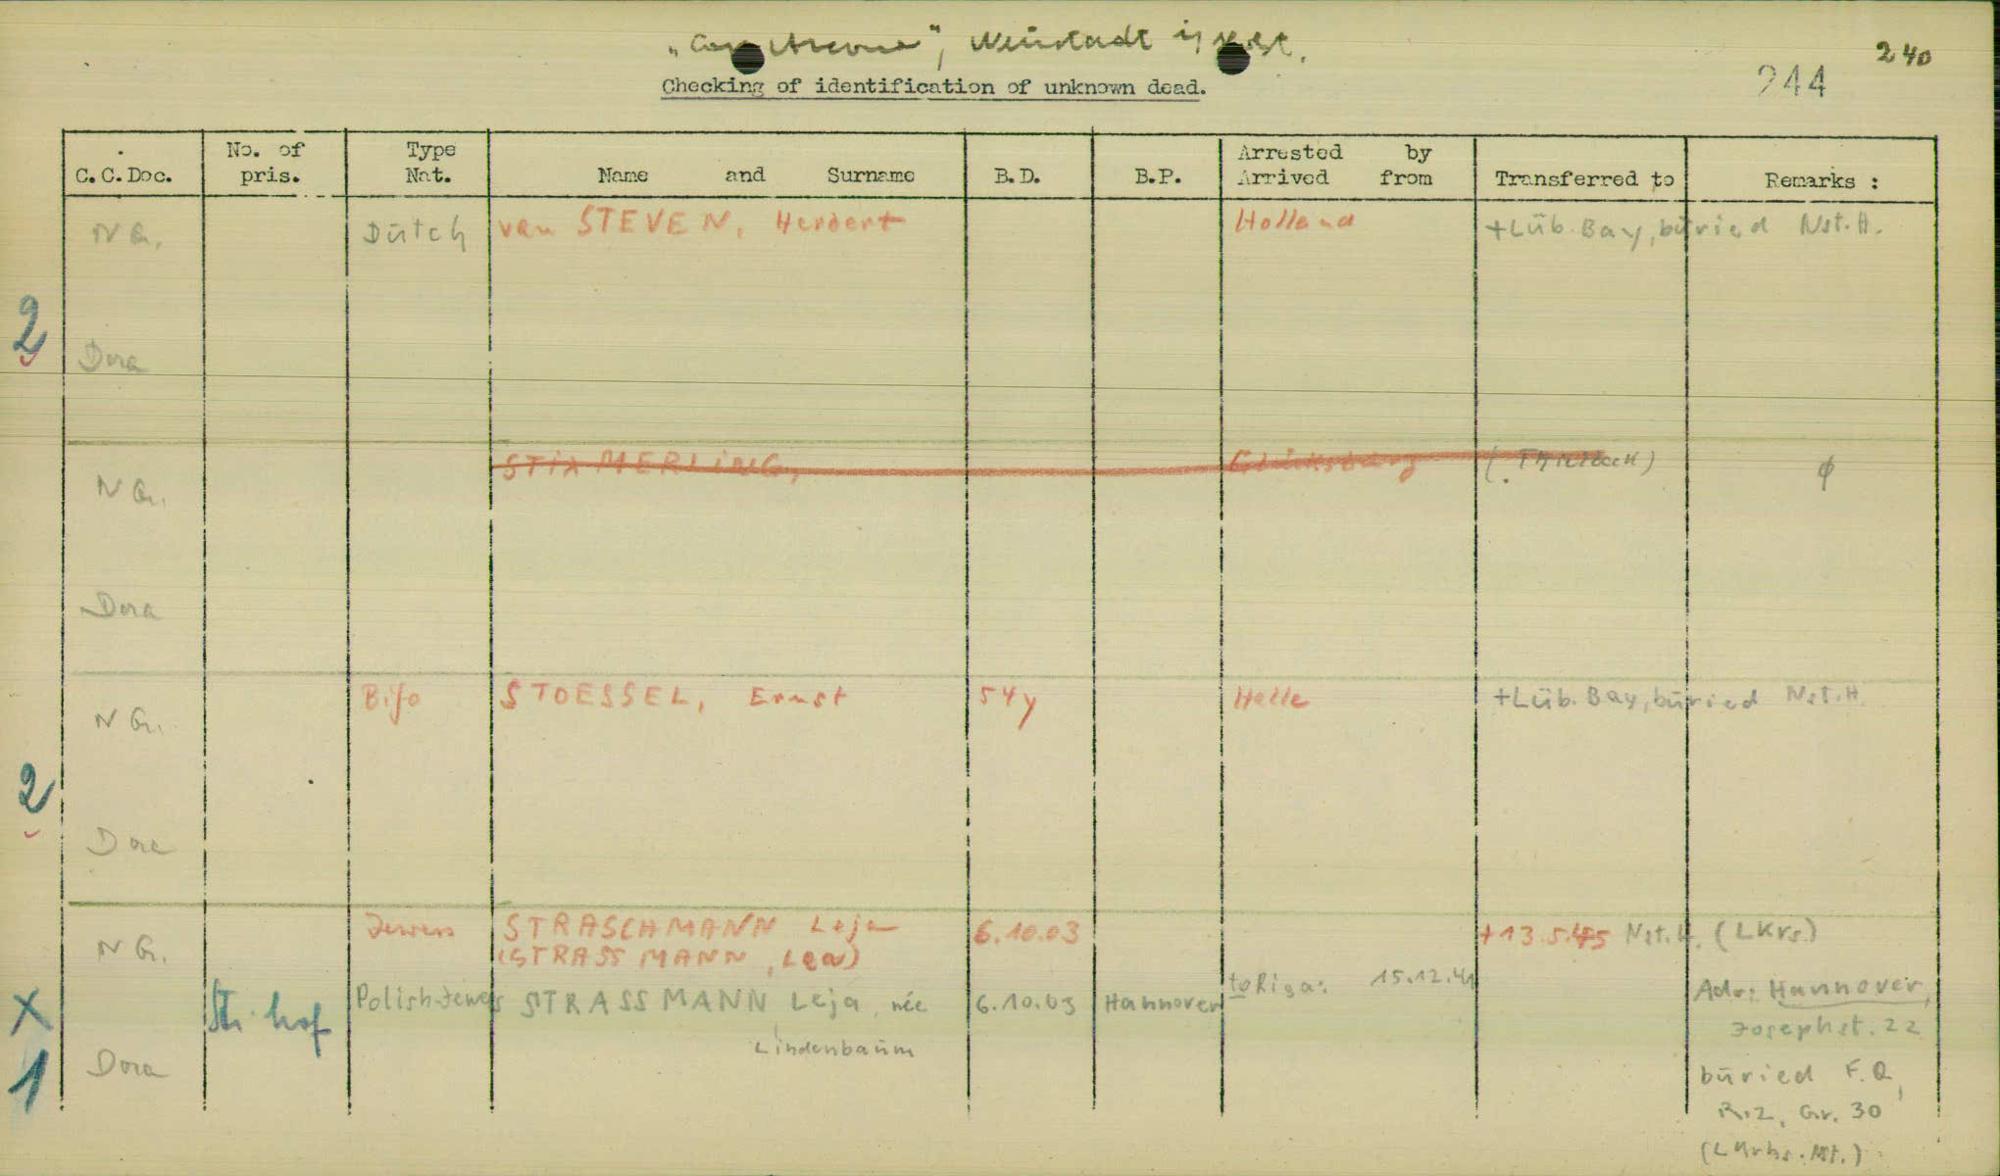 „Cap Arcona“, Neustadt i/Holst.
240
944
Checking of identification of unknown dead.
C.C.Doc. No. of pris. Type Nat. Name and Surname B.D. B.P. Arrested by Arrived from Transferred to Remarks :
N G. Dutch van STEVEN, Herbert Holland +Lüb. Bay, buried Nst. H.
2
Dora
N G. STIXMERLING, Glücksburg ( ) ϕ
Dora
N G. Bifo STOESSEL, Ernst 54y Halle +Lüb. Bay, buried Nst. H.
2
Dora
N G. Jewess STRASCHMANN Leja 6.10.03 +13.5.45 Nst. H. (LKrs)
(STRASSMANN, Lea)
X Stu. hof Polish-Jewess STRASSMANN Leja, née 6.10.03 Hannover to Riga: 15.12.41 Adr: Hannover,
Lindenbaum Josephst. 22
1 Dora buried F.Q,
R.2, Gr. 30
(LKrhs. Nst.)